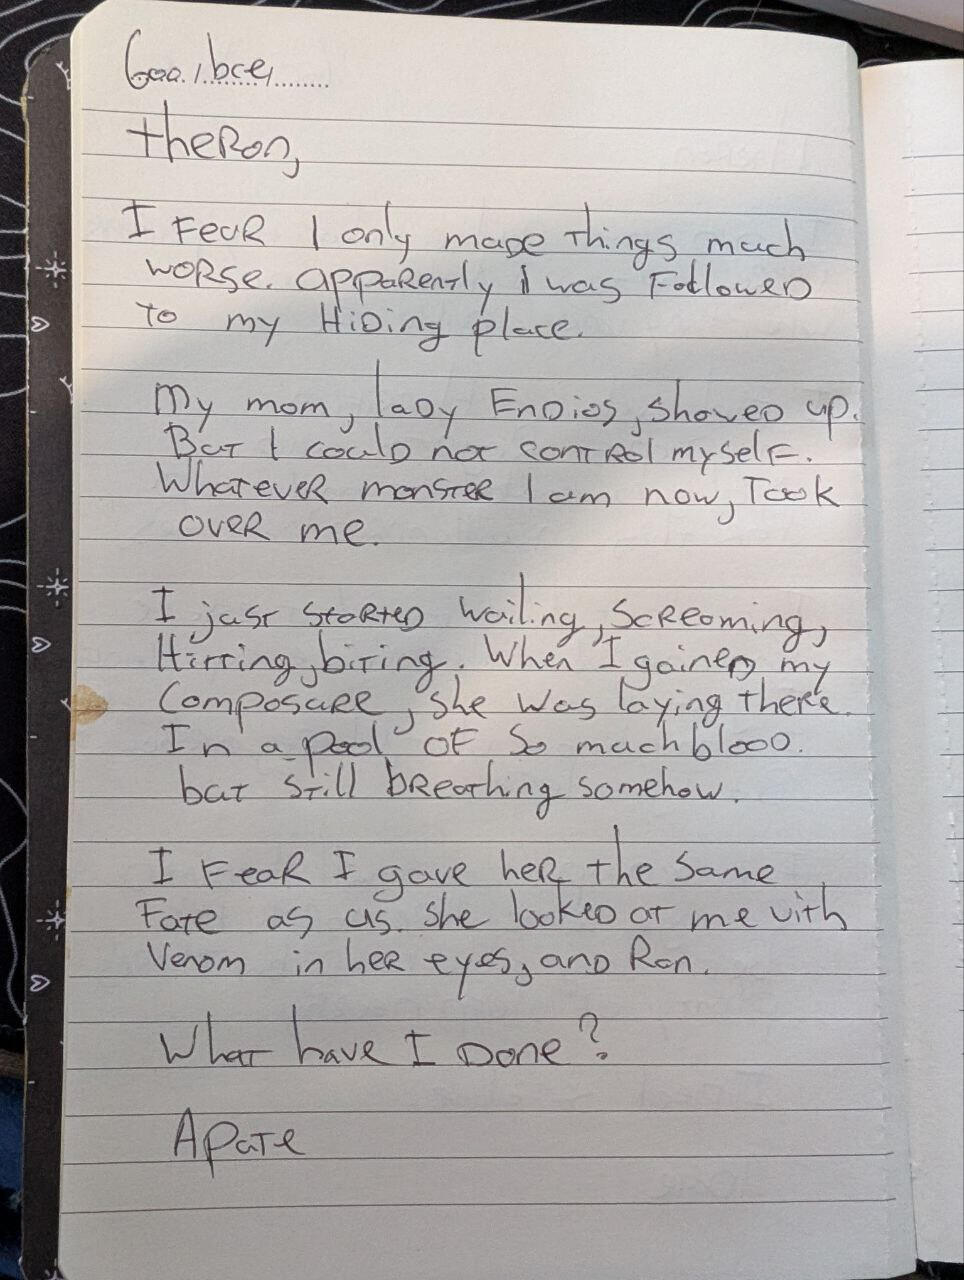 theRon,
I FeaR I only made things much
worse. apparently I was Followed
to my Hiding place.
My mom, lady Endios, showed up.
But I could not control myself.
Whatever monster I am now, Took
over me.
I just started wailing, Screaming,
Hitting, biting. When I gained my
Composure, she was laying there.
In a pool of so much blood.
but still breathing somehow.
I Fear I gave her the same
Fate as us. she looked at me with
Venom in her eyes, and Ran.
What have I Done?
Apate